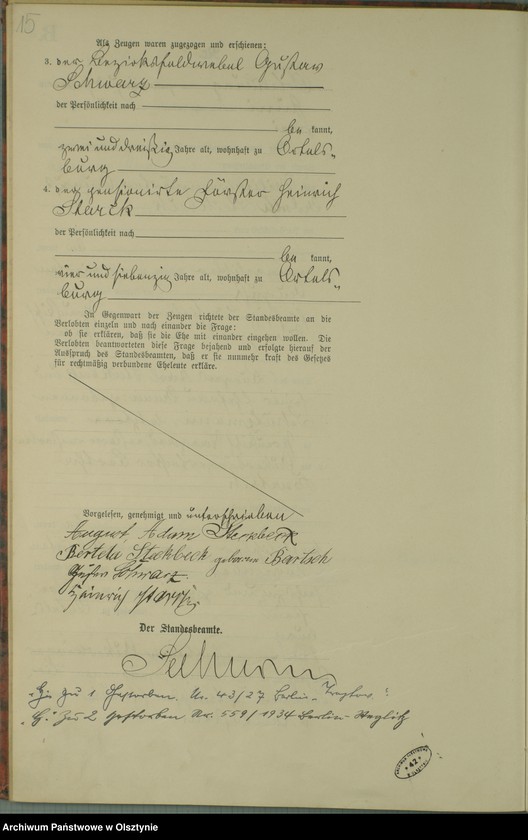 15
Als Zeugen waren zugezogen und erschienen:
3. der Bezirksfeldwebel Gustav
Schwarz
der Persönlichkeit nach
be kannt,
zwei und dreißig Jahre alt, wohnhaft zu Ortels-
burg
4. der pensionirte Förster Heinrich
der Persönlichkeit nach
be kannt,
vier und siebenzig Jahre alt, wohnhaft zu Ortels-
burg
In Gegenwart der Zeugen richtete der Standesbeamte an die
Verlobten einzeln und nach einander die Frage:
ob sie erklären, daß sie die Ehe mit einander eingehen wollen. Die
Verlobten beantworteten diese Frage bejahend und erfolgte hierauf der
Ausspruch des Standesbeamten, daß er sie nunmehr kraft des Gesetzes
für rechtmäßig verbundene Eheleute erkläre.
Vorgelesen, genehmigt und unterschrieben
August Adam
geborene Bartsch
Gustav Schwarz
Heinrich
Der Standesbeamte.
zu 1 Gestorben. Nr. 43/27 Berlin-Treptow
zu 2 gestorben Nr. 559/1934 Berlin-Steglitz
*42*
Archiwum Państwowe w Olsztynie